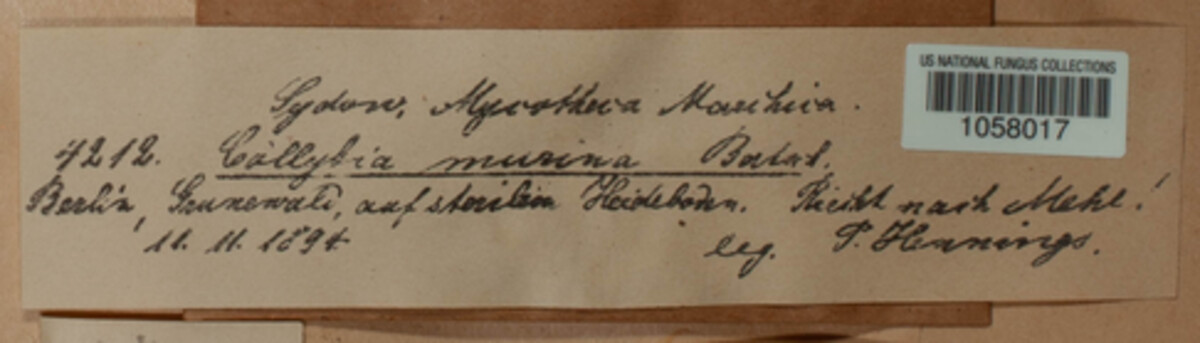 US NATIONAL FUNGUS COLLECTIONS
1058017
Sydow, Mycotheca Marchica.
4212. Collybia murina Batsch.
Berlin, Grunewald, auf sterilem Heideboden. Riecht nach Mehl!
11. 11. 1894 leg. P. Hennings.